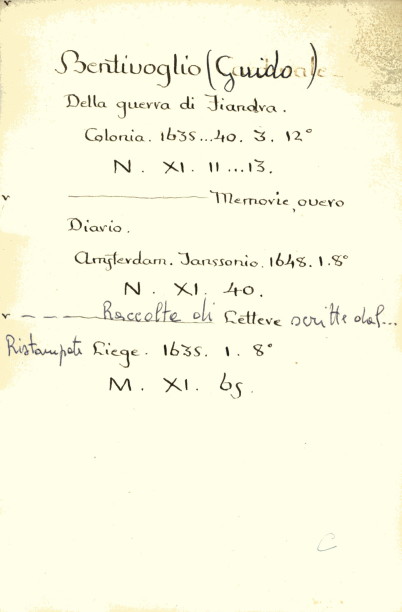 Bentivoglio (Guido)
Della guerra di Fiandra.
Colonia. 1635...40. 3. 12°
N. XI. 11...13.
v ——— Memorie, overo
Diario.
Amsterdam. Janssonio. 1648. 1. 8°
N. XI. 40.
v – – – Raccolte di Lettere scritte dal...
Ristampate Liege. 1635. 1. 8°
M. XI. 65.
C